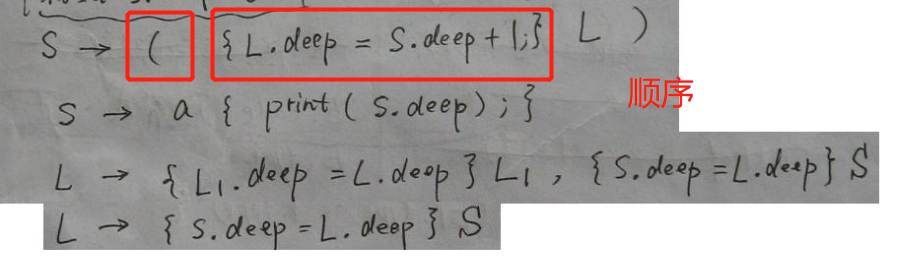 S → ( {L.deep = S.deep + 1;} L )
顺序
S → a { print ( S.deep ) ; }
L → { L₁.deep = L.deep } L₁ , { S.deep = L.deep } S
L → { S.deep = L.deep } S